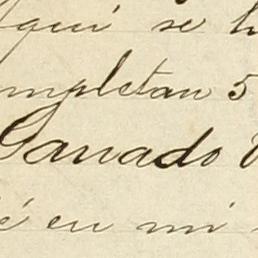 qui se h
ompletan 5
Ganado V
é en mi